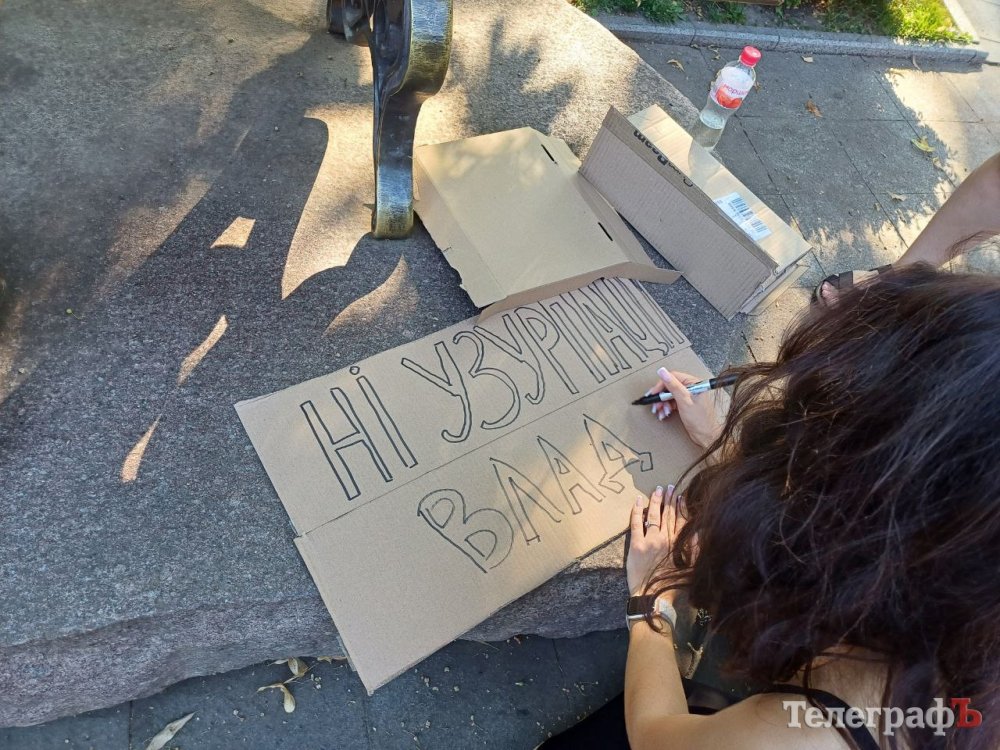 НІ УЗУРПАЦІЇ
ВЛАД
ТелеграфЪ